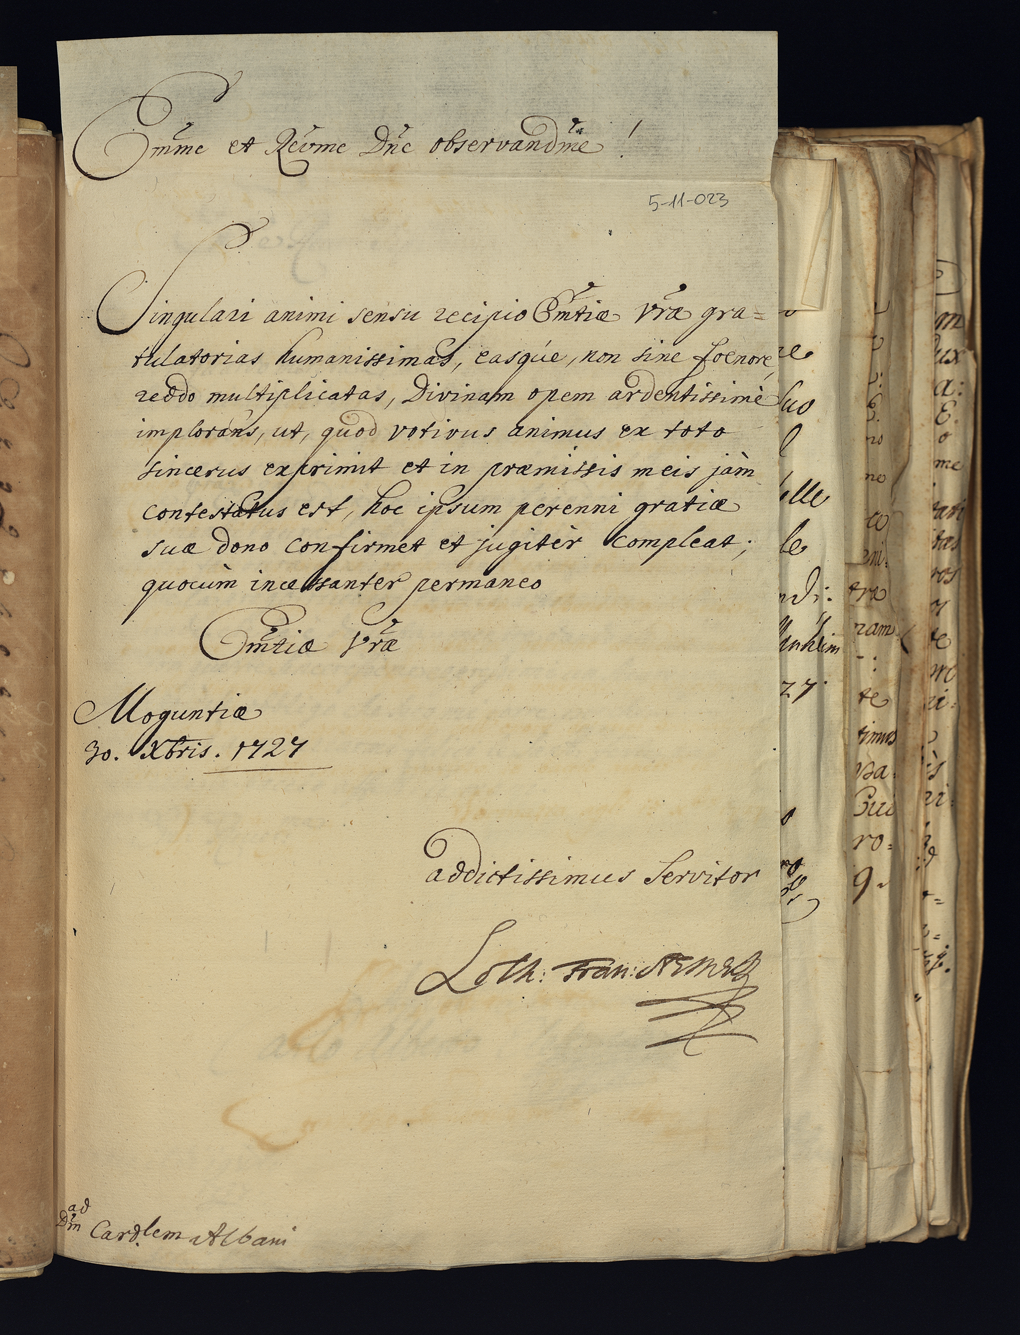 Emme et Revme Dne observandme !
5-11-023
Singulari animi sensu recipio Emtiæ Vræ gra=
tulatorias humanissimas, easque, non sine foenore,
reddo multiplicatas, Divinam opem ardentissimè
implorans, ut, quod votivus animus ex toto
sincerus exprimit et in præmissis meis jàm
contestatus est, hoc ipsum perenni gratiæ
suæ dono confirmet et jugitèr compleat;
quocùm incessanter permaneo
Emtiæ Vræ
Moguntiæ
30. Xbris. 1727
addictissimus Servitor
Loth: Fran:
ad
Dm Cardlem Albani